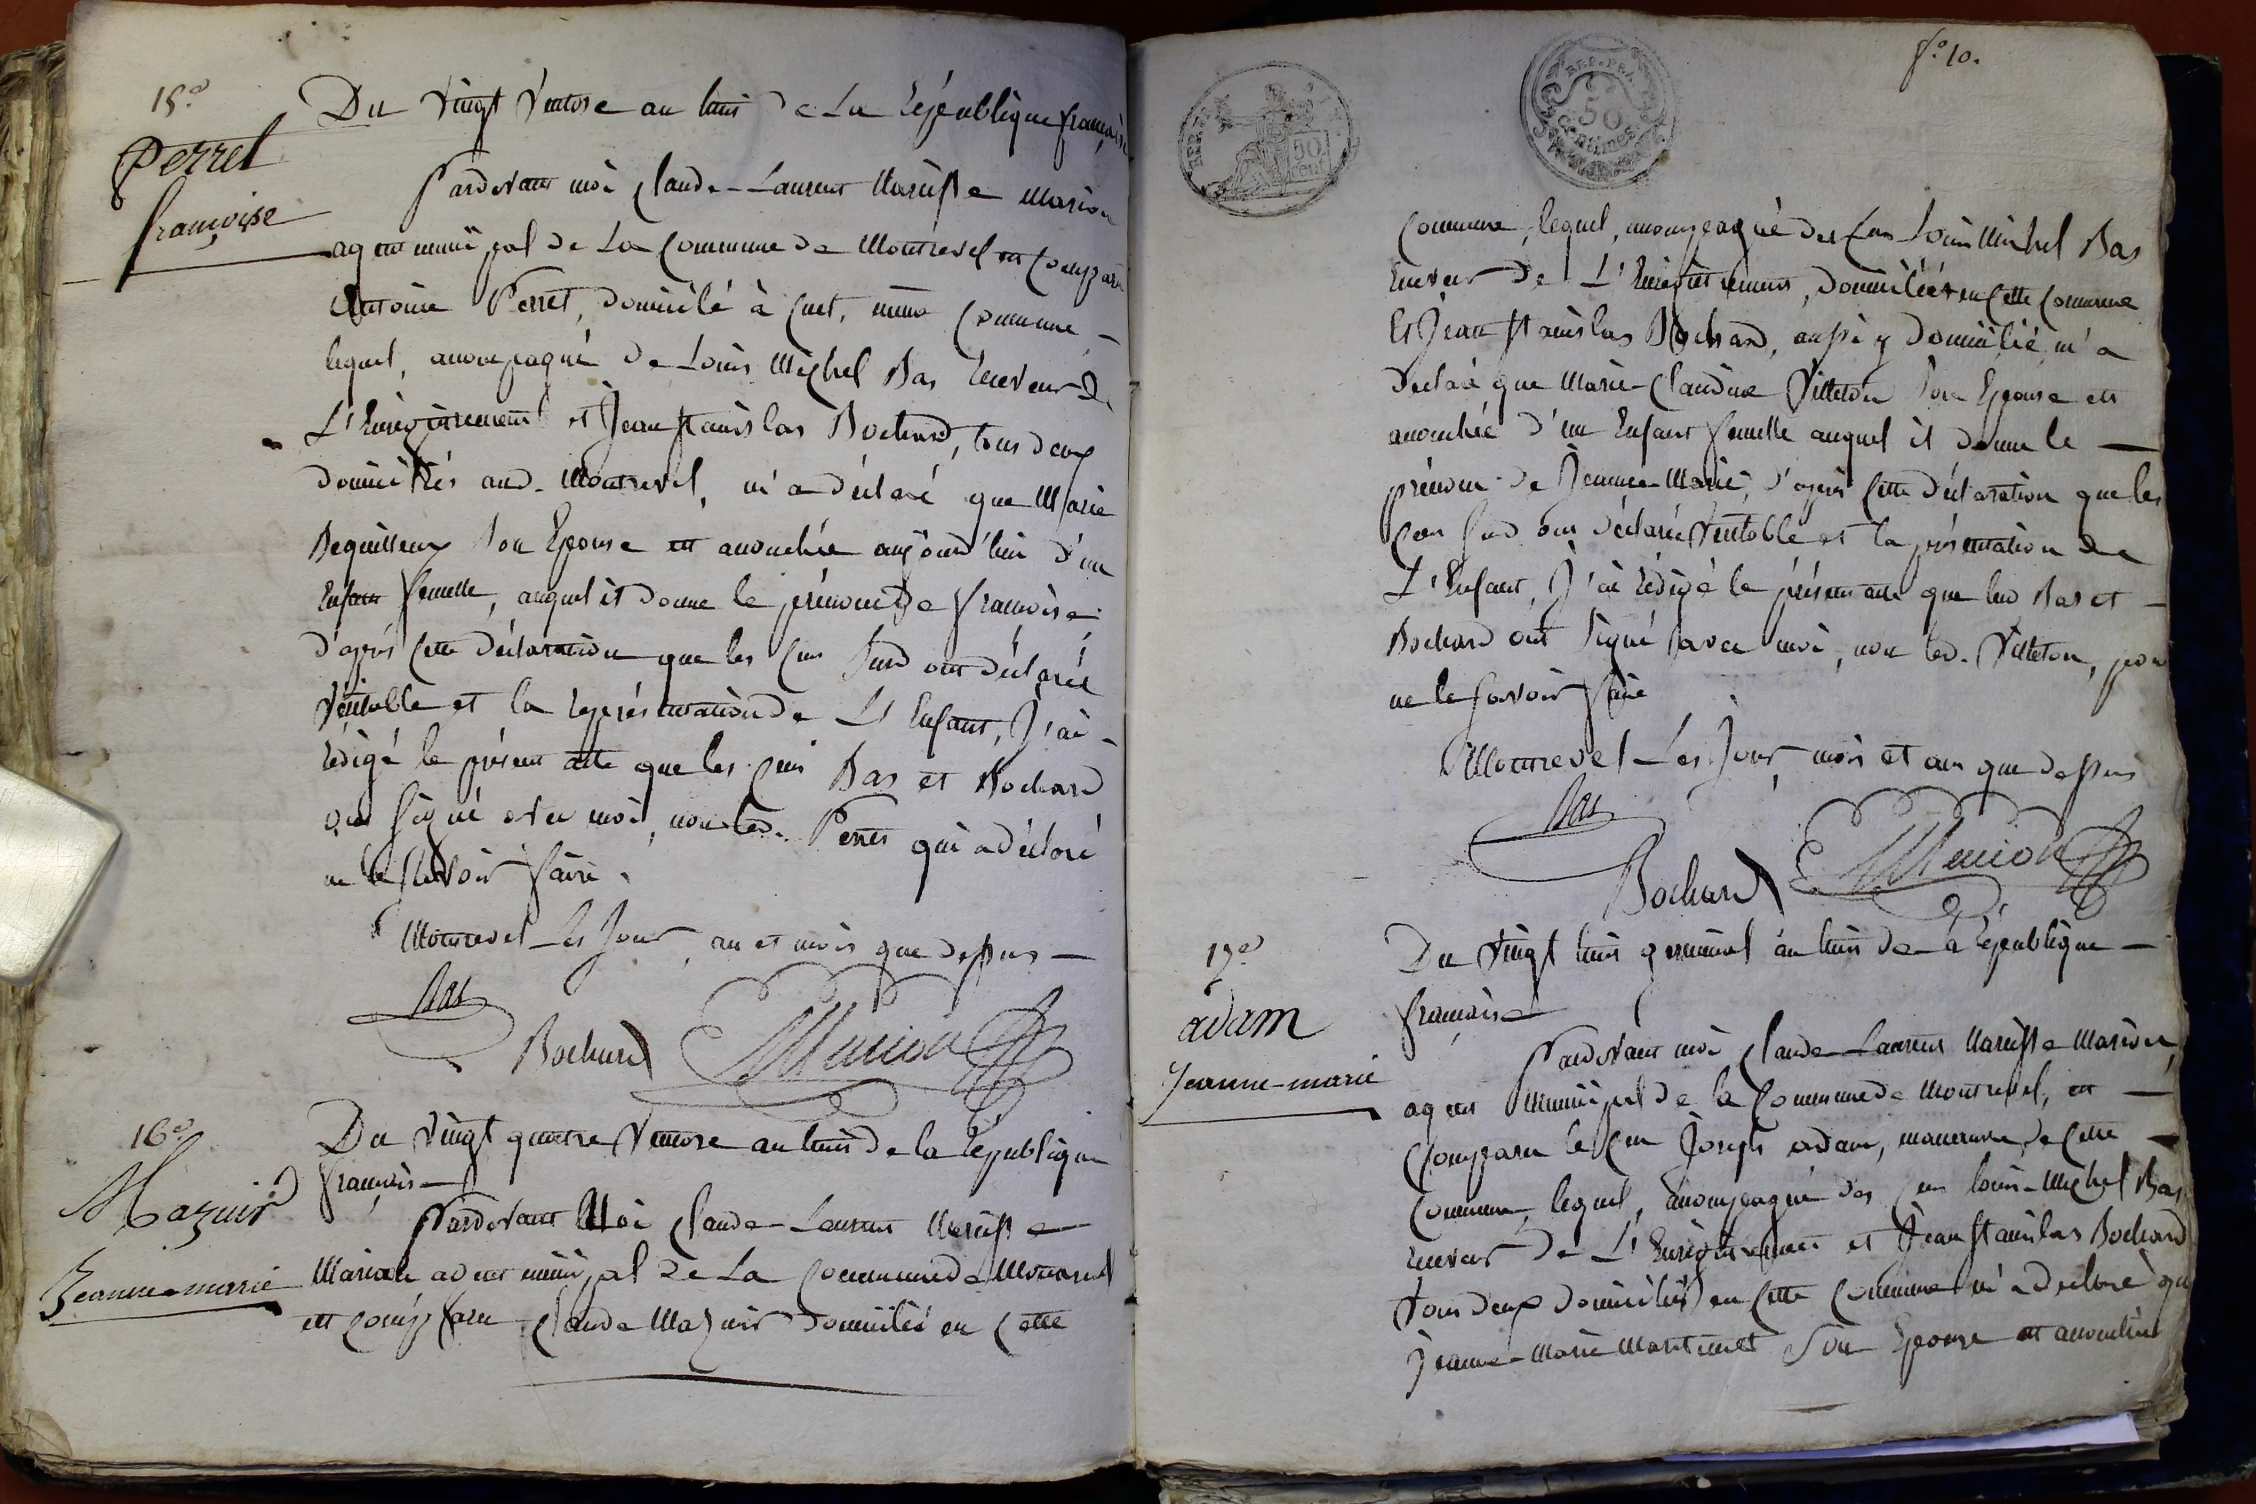 15.o
Perret
françoise
Du vingt Ventose an huit de La République française
Pardevant moi Claude-Laurent Narcisse Marion
agent municipal de La Commune de Montrevel est comparu
Antoine Perret, domicilié à Cuet, même Commune -
lequel, accompagné de Louis Michel Bas Receveur de
L'Enregistrement et Jean Stanislas Bochard, tous deux
domiciliés aud. Montrevel, m'a déclaré que Marie
Dequilleux Son Epouse est accouchée aujourd'hui d'un
Enfant femelle, auquel it donne le prénom de françoise
d'après Cette déclaration que les Cns Susd ont déclaré
Véritable et la représentation de L'Enfant, J'ai -
rédigé le présent acte que les Cns Bas et Bochard
ont Signé avec moi, non led. Perret qui a déclaré
ne le Savoir faire.
Montrevel Les Jour, an et mois que dessus -
Bas
Bochard Marion
16.o
Mazuir
Jeanne-marie
Du Vingt quatre Ventose an huit de la République
française
Pardevant Moi Claude-Laurent Narcisse
Marion agent municipal de La Commune de Montrevel
est comparu Claude Mazuir domicilié en Cette
fo. 10.
REP. FRA.
50
centimes
50
cen
Commune, lequel, accompagné des Cns Louis Michel Bas
Receveur de L'Enregistrement, domiciliés en Cette Commune
Et Jean Stanislas Bochard, aussi y domicilié, m'a
déclaré que Marie-Claudine Villeton Son Epouse est
accouchée d'un Enfant femelle auquel it donne le -
prénom de Jeanne-Marie, d'après Cette déclaration que les
Cns Susd ont déclaré Véritable et la présentation de
L'Enfant, J'ai rédigé le présent acte que lesd Bas et -
Bochard ont Signé avec moi, non led. Villeton, pour
ne le Savoir faire
Montrevel Les Jour, mois et an que dessus
Bas
Bochard Marion
17.o
adam
Jeanne-marie
Du Vingt huit germinal an huit de la République -
française
Pardevant moi Claude Laurent Narcisse Marion,
agent Municipal de la Commune de Montrevel, est -
Comparu le Cen Joseph adam, manœuvre de Cette -
Commune, lequel, accompagné des Cns louis-Michel Bas
receveur de L'Enregistrement et Jean Stanislas Bochard
tous deux domiciliés en Cette Commune m'a déclaré que
Jeanne-Marie Martinet Son Epouse est accouchée